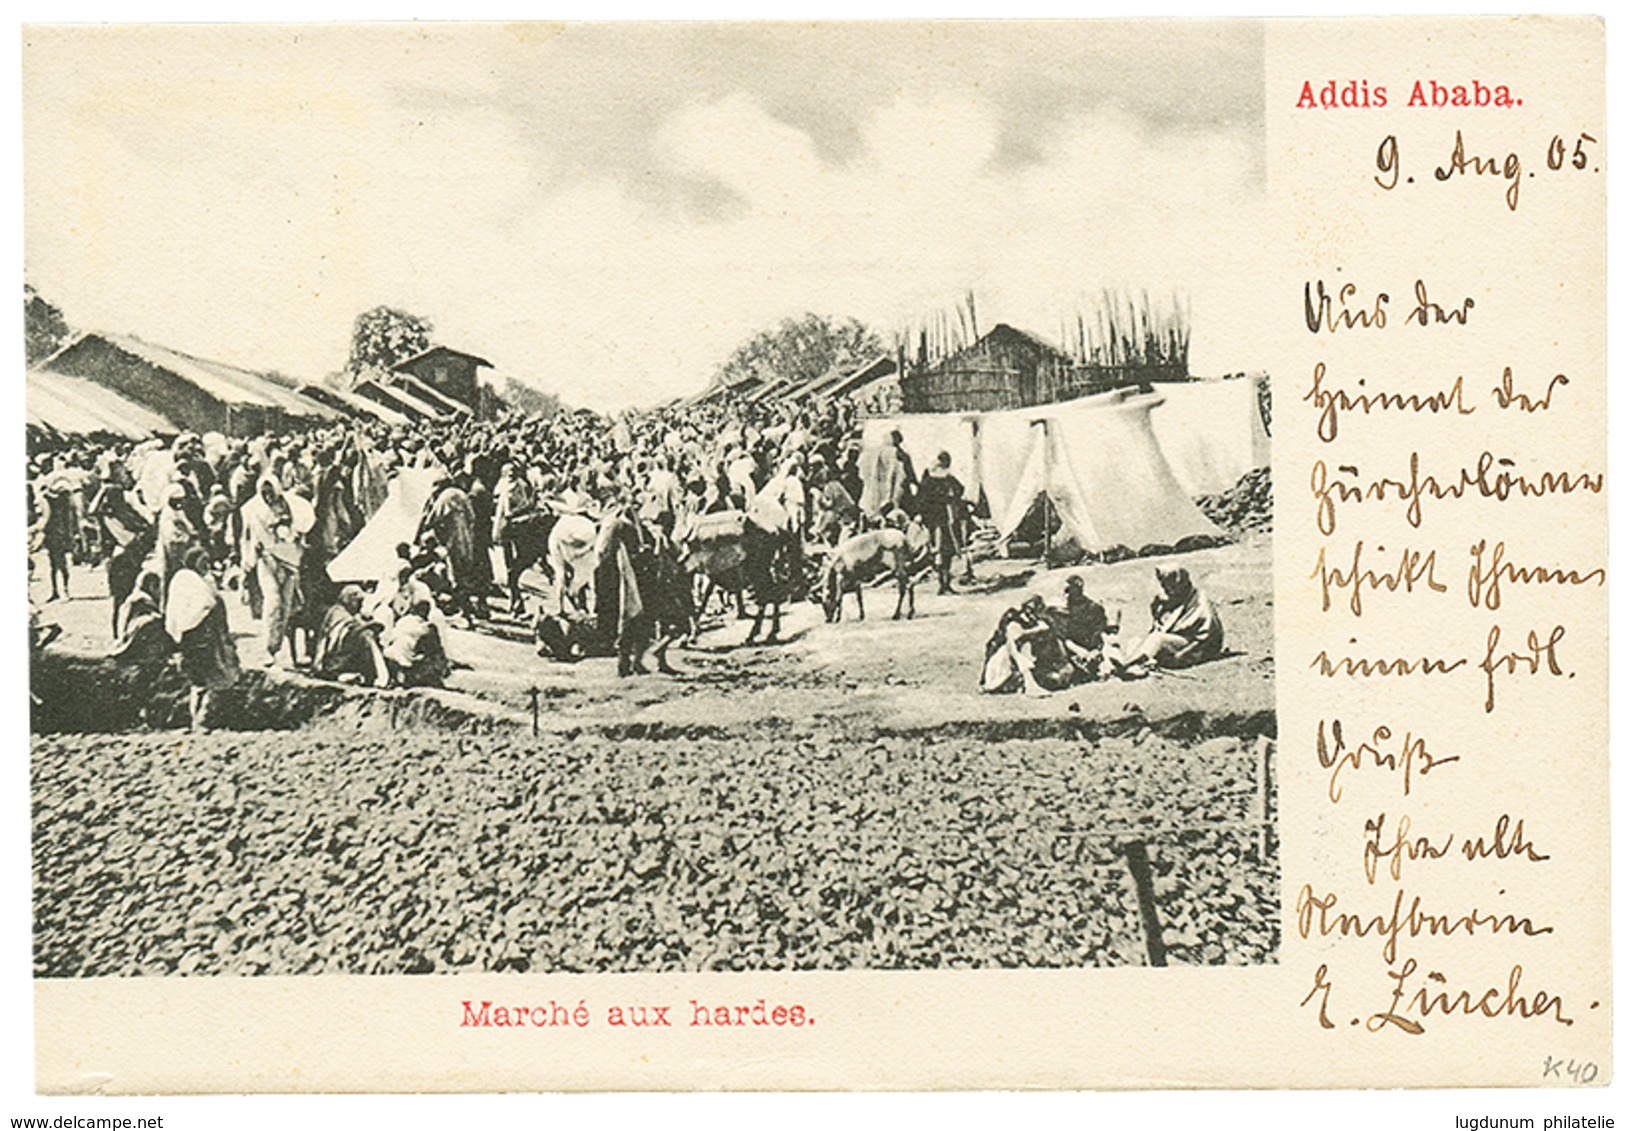 Addis Ababa.
9. Aug. 05.
Aus der
Heimat des
Zürcherlöwen
schickt Ihnen
einen frdl.
Gruß
Ihre alte
Nachbarin
E. Zürcher.
Marché aux hardes.
K40
delcampe.net
lugdunum philatelie